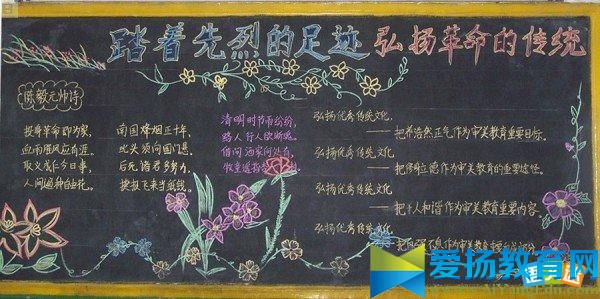 踏着先烈的足迹 弘扬革命的传统
陈毅元帅诗
投身革命即为家,
血雨腥风应有涯。
取义成仁今日事,
人间遍种自由花。
南国烽烟正十年,
此头须向国门悬。
后死诸君多努力,
捷报飞来当纸钱。
清明时节雨纷纷,
路上行人欲断魂。
借问酒家何处有,
牧童遥指
弘扬优秀传统文化,
——把养浩然正气作为审美教育重要目标。
弘扬优秀传统文化,
——把修身立德作为审美教育的重要途径。
弘扬优秀传统文化,
——把天人和谐作为审美教育重要内容。
弘扬优秀传统文化,
——把自强不息作为审美教育重要
爱扬教育网